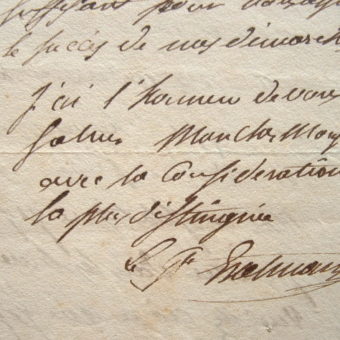 suffisant pour
le succès de nos démarch
J'ai l'honneur de vous
saluer Monsieur
avec la Considération
la plus distinguée
Le